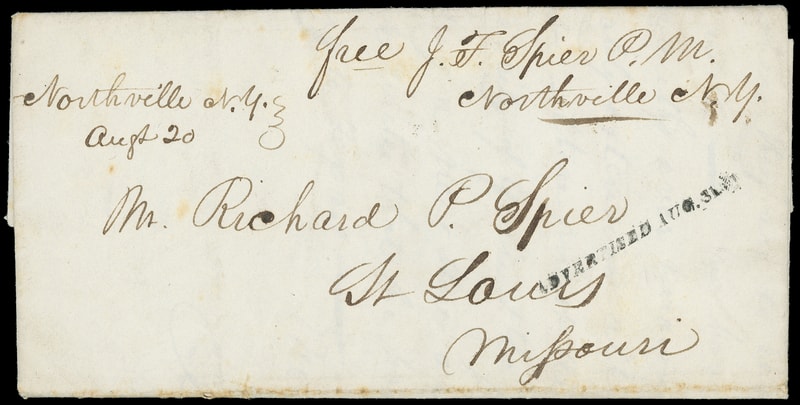 free J. F. Spier P. M.
Northville N.Y.
Northville N.Y.
Augt 20
Mr. Richard P. Spier
St Louis
Missouri
ADVERTISED AUG. 31.